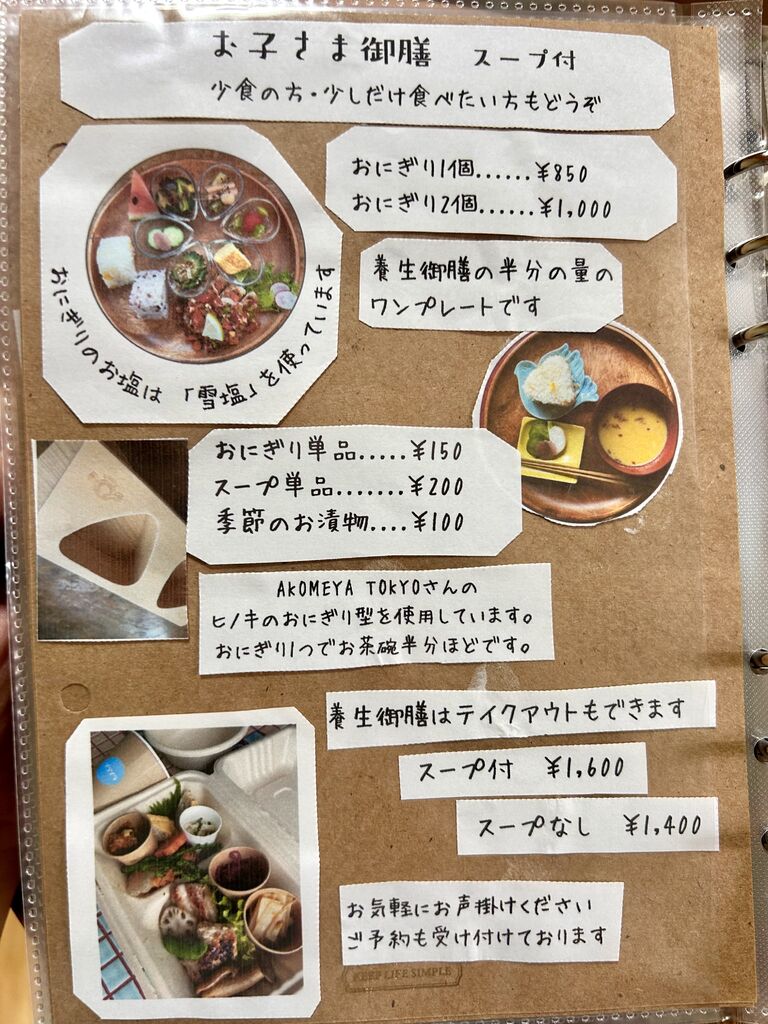 お子さま御膳 スープ付
少食の方・少しだけ食べたい方もどうぞ
おにぎり1個......¥850
おにぎり2個......¥1,000
養生御膳の半分の量の
ワンプレートです
おにぎりのお塩は「雪塩」を使っています
おにぎり単品.....¥150
スープ単品.......¥200
季節のお漬物....¥100
AKOMEYA TOKYOさんの
ヒノキのおにぎり型を使用しています。
おにぎり1つでお茶碗半分ほどです。
養生御膳はテイクアウトもできます
スープ付 ¥1,600
スープなし ¥1,400
お気軽にお声掛けください
ご予約も受け付けております
KEEP LIFE SIMPLE